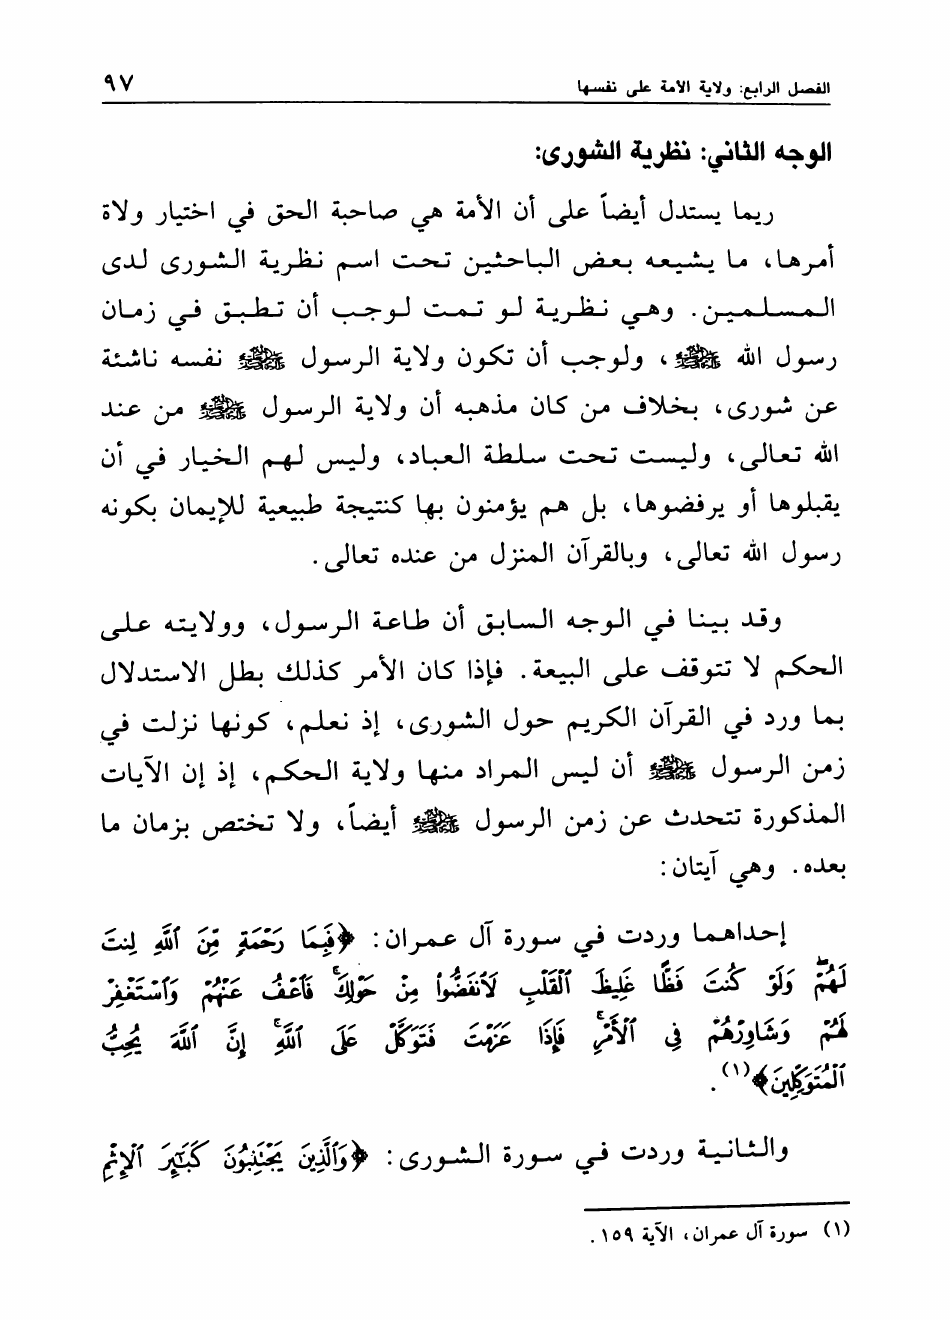 الفصل الرابع: ولاية الأمة على نفسها ٩٧
الوجه الثاني: نظرية الشورى:
ربما يستدل أيضاً على أن الأمة هي صاحبة الحق في اختيار ولاة
أمرها، ما يشيعه بعض الباحثين تحت اسم نظرية الشورى لدى
المسلمين. وهي نظرية لو تمت لوجب أن تطبق في زمان
رسول الله ﷺ، ولوجب أن تكون ولاية الرسول ﷺ نفسه ناشئة
عن شورى، بخلاف من كان مذهبه أن ولاية الرسول ﷺ من عند
الله تعالى، وليست تحت سلطة العباد، وليس لهم الخيار في أن
يقبلوها أو يرفضوها، بل هم يؤمنون بها كنتيجة طبيعية للإيمان بكونه
رسول الله تعالى، وبالقرآن المنزل من عنده تعالى.
وقد بينا في الوجه السابق أن طاعة الرسول، وولايته على
الحكم لا تتوقف على البيعة. فإذا كان الأمر كذلك بطل الاستدلال
بما ورد في القرآن الكريم حول الشورى، إذ نعلم، كونها نزلت في
زمن الرسول ﷺ أن ليس المراد منها ولاية الحكم، إذ إن الآيات
المذكورة تتحدث عن زمن الرسول ﷺ أيضاً، ولا تختص بزمان ما
بعده. وهي آيتان:
إحداهما وردت في سورة آل عمران: ﴿فَبِمَا رَحْمَةٍ مِّنَ ٱللَّهِ لِنتَ
لَهُمْۖ وَلَوْ كُنتَ فَظًّا غَلِيظَ ٱلْقَلْبِ لَٱنفَضُّوا۟ مِنْ حَوْلِكَۖ فَٱعْفُ عَنْهُمْ وَٱسْتَغْفِرْ
لَهُمْ وَشَاوِرْهُمْ فِى ٱلْأَمْرِۖ فَإِذَا عَزَمْتَ فَتَوَكَّلْ عَلَى ٱللَّهِۚ إِنَّ ٱللَّهَ يُحِبُّ
ٱلْمُتَوَكِّلِينَ﴾(١).
والثانية وردت في سورة الشورى: ﴿وَٱلَّذِينَ يَجْتَنِبُونَ كَبَـٰٓئِرَ ٱلْإِثْمِ
(١) سورة آل عمران، الآية ١٥٩.